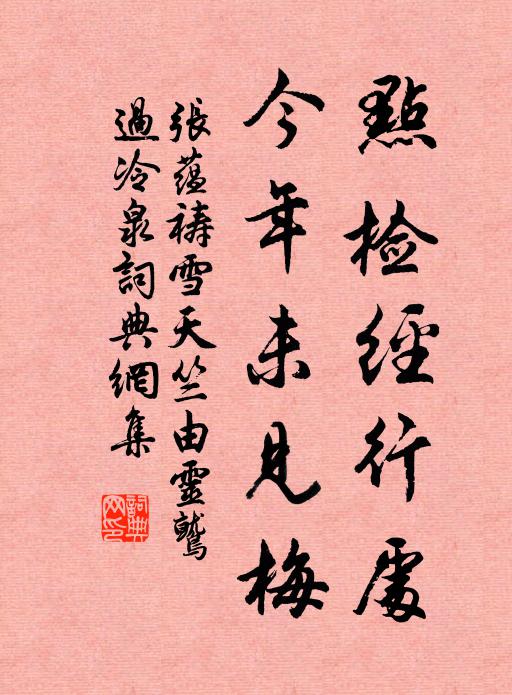 點检經行處
今年未見梅
張蕴禱雪天竺由靈鷲
過冷泉詞典網集
詞典
网印